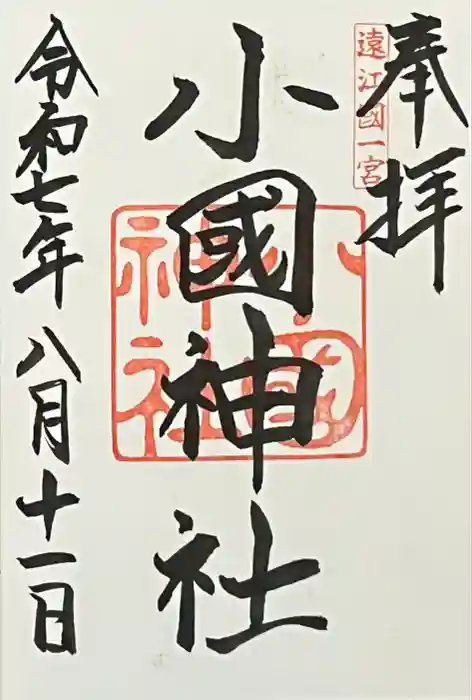 奉拝
遠江國一宮
小國神社
小國神社
令和七年八月十一日